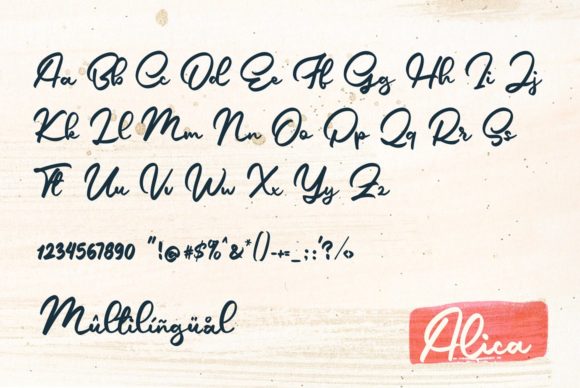 Aa Bb Cc Dd Ee Ff Gg Hh Ii Jj
Kk Ll Mm Nn Oo Pp Qq Rr Ss
Tt Uu Vv Ww Xx Yy Zz
1234567890 "!@#$%^&*()-+=_:;'?/<>
Mûltìlíñgüål
Alica